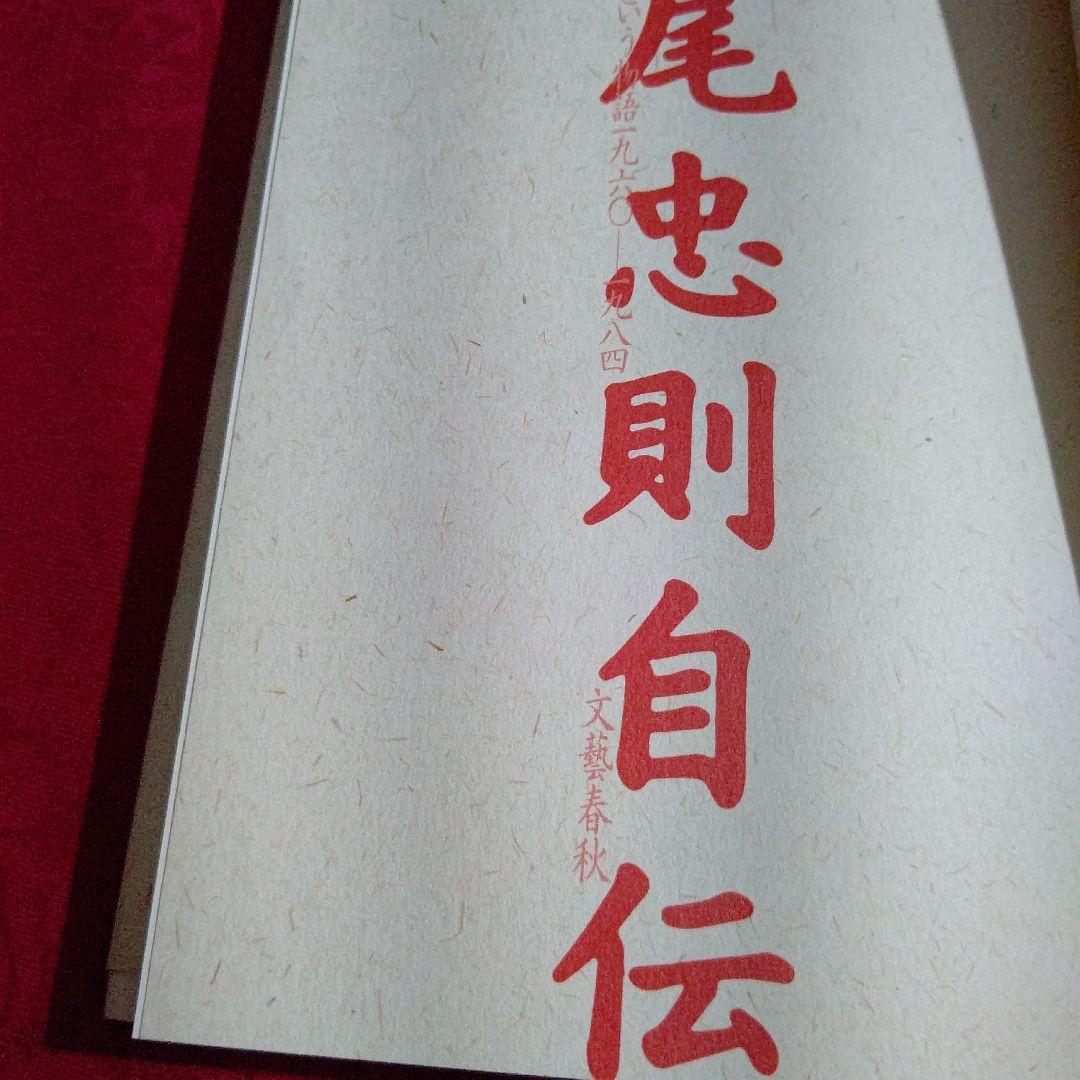 尾忠則自伝
いう物語一九六〇—一九八四
文藝春秋